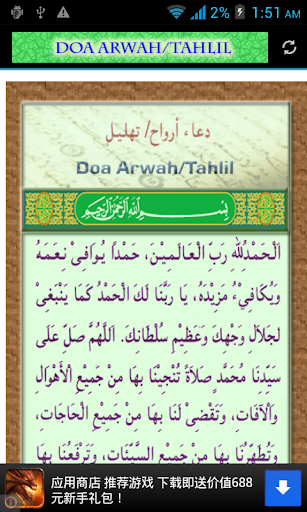 1:51 AM
DOA ARWAH/TAHLIL
دعاء أرواح/ تهليل
Doa Arwah/Tahlil
بِسْمِ اللَّهِ الرَّحْمَٰنِ الرَّحِيمِ
اَلْحَمْدُلِلَّهِ رَبِّ الْعَالَمِيْنَ، حَمْدًا يُوَافِىْ نِعَمَهُ
وَيُكَافِىُٔ مَزِيْدَهُ، يَا رَبَّنَا لَكَ الْحَمْدُ كَمَا يَنْبَغِىْ
لِجَلَالِ وَجْهِكَ وَعَظِيْمِ سُلْطَانِكَ. اَللَّهُمَّ صَلِّ عَلَى
سَيِّدِنَا مُحَمَّدٍ صَلَاةً تُنْجِيْنَا بِهَا مِنْ جَمِيْعِ الْأَهْوَالِ
وَالْآفَاتِ، وَتَقْضِىْ لَنَا بِهَا مِنْ جَمِيْعِ الْحَاجَاتِ،
وَتُطَهِّرُنَا بِهَا مِنْ جَمِيْعِ السَّيِّئَاتِ، وَتَرْفَعُنَا بِهَا
应用商店 推荐游戏 下载即送价值688
元新手礼包！